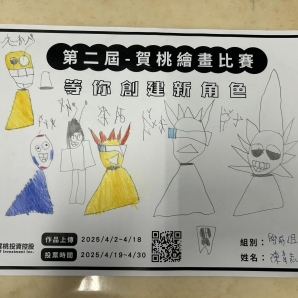 第二屆-賀桃繪畫比賽
等你創建新角色
賀桃投資控股
Investment Inc.
作品上傳 2025/4/2-4/18
投票時間 2025/4/19-4/30
組別：
姓名：陳